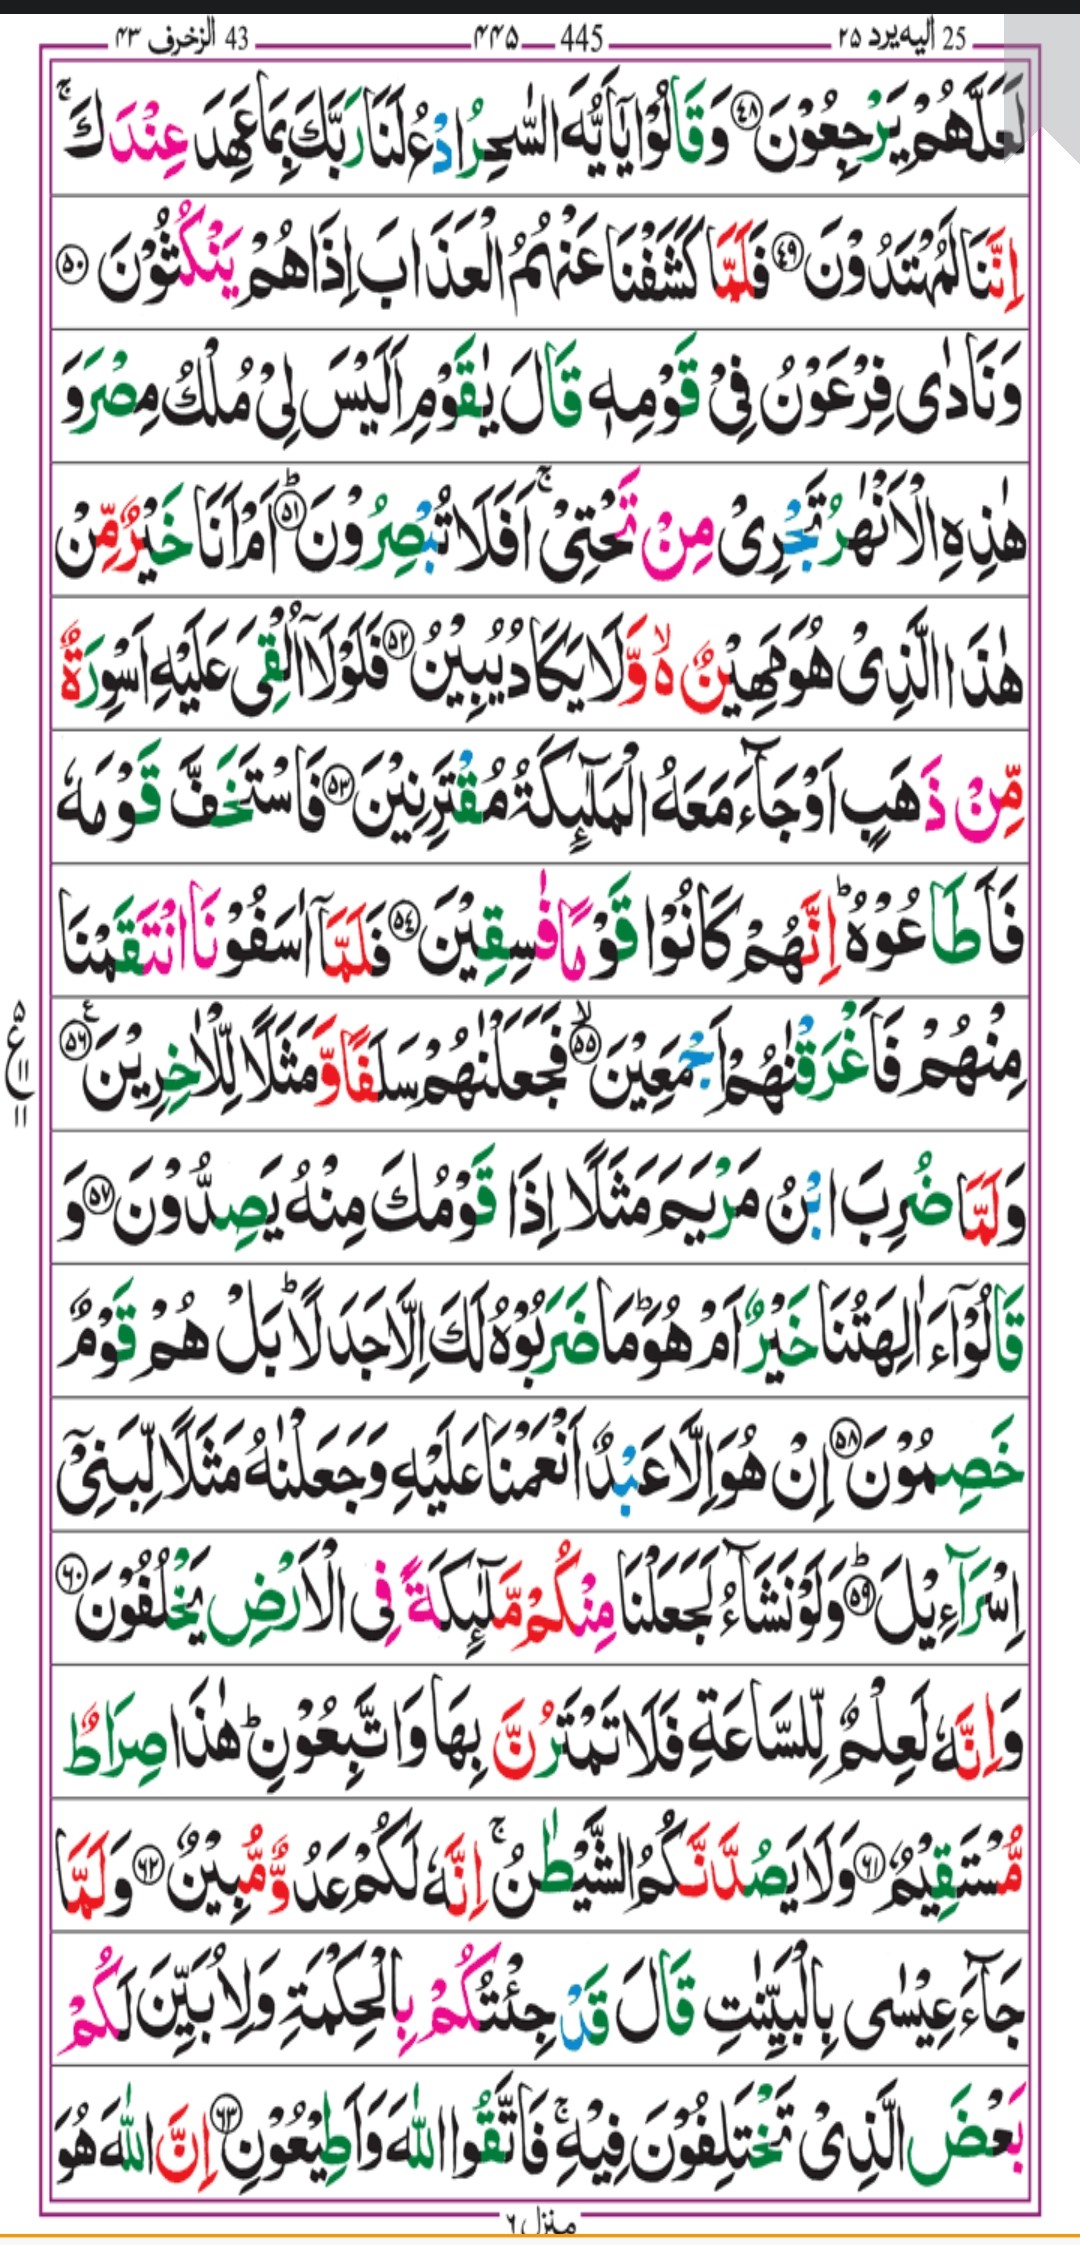 25 الیه یرد ۲۵ 445 ۴۴۵ 43 الزخرف ۴۳
لَعَلَّهُمْ يَرْجِعُوْنَ ﴿۴۸﴾ وَقَالُوْا يٰۤاَيُّهَ السّٰحِرُ ادْعُ لَنَا رَبَّكَ بِمَا عَهِدَ عِنْدَكَ ۚ
اِنَّنَا لَمُهْتَدُوْنَ ﴿۴۹﴾ فَلَمَّا كَشَفْنَا عَنْهُمُ الْعَذَابَ اِذَا هُمْ يَنْكُثُوْنَ ﴿۵۰﴾
وَنَادٰى فِرْعَوْنُ فِيْ قَوْمِهٖ قَالَ يٰقَوْمِ اَلَيْسَ لِيْ مُلْكُ مِصْرَ وَ
هٰذِهِ الْاَنْهٰرُ تَجْرِيْ مِنْ تَحْتِيْ ۚ اَفَلَا تُبْصِرُوْنَ ﴿۵۱﴾ ؕ اَمْ اَنَا خَيْرٌ مِّنْ
هٰذَا الَّذِيْ هُوَ مَهِيْنٌ ۙ۬ وَّلَا يَكَادُ يُبِيْنُ ﴿۵۲﴾ فَلَوْلَاۤ اُلْقِيَ عَلَيْهِ اَسْوِرَةٌ
مِّنْ ذَهَبٍ اَوْ جَآءَ مَعَهُ الْمَلٰٓئِكَةُ مُقْتَرِنِيْنَ ﴿۵۳﴾ فَاسْتَخَفَّ قَوْمَهٗ
فَاَطَاعُوْهُ ؕ اِنَّهُمْ كَانُوْا قَوْمًا فٰسِقِيْنَ ﴿۵۴﴾ فَلَمَّاۤ اٰسَفُوْنَا انْتَقَمْنَا
مِنْهُمْ فَاَغْرَقْنٰهُمْ اَجْمَعِيْنَ ﴿۵۵﴾ ۙ فَجَعَلْنٰهُمْ سَلَفًا وَّمَثَلًا لِّلْاٰخِرِيْنَ ﴿۵۶﴾ ۧ
۵ ع ۱۱ ۱۱
وَلَمَّا ضُرِبَ ابْنُ مَرْيَمَ مَثَلًا اِذَا قَوْمُكَ مِنْهُ يَصِدُّوْنَ ﴿۵۷﴾ وَ
قَالُوْۤا ءَاٰلِهَتُنَا خَيْرٌ اَمْ هُوَ ؕ مَا ضَرَبُوْهُ لَكَ اِلَّا جَدَلًا ؕ بَلْ هُمْ قَوْمٌ
خَصِمُوْنَ ﴿۵۸﴾ اِنْ هُوَ اِلَّا عَبْدٌ اَنْعَمْنَا عَلَيْهِ وَجَعَلْنٰهُ مَثَلًا لِّبَنِيْۤ
اِسْرَآءِيْلَ ﴿۵۹﴾ ؕ وَلَوْ نَشَآءُ لَجَعَلْنَا مِنْكُمْ مَّلٰٓئِكَةً فِي الْاَرْضِ يَخْلُفُوْنَ ﴿۶۰﴾
وَاِنَّهٗ لَعِلْمٌ لِّلسَّاعَةِ فَلَا تَمْتَرُنَّ بِهَا وَاتَّبِعُوْنِ ؕ هٰذَا صِرَاطٌ
مُّسْتَقِيْمٌ ﴿۶۱﴾ وَلَا يَصُدَّنَّكُمُ الشَّيْطٰنُ ۚ اِنَّهٗ لَكُمْ عَدُوٌّ مُّبِيْنٌ ﴿۶۲﴾ وَلَمَّا
جَآءَ عِيْسٰى بِالْبَيِّنٰتِ قَالَ قَدْ جِئْتُكُمْ بِالْحِكْمَةِ وَلِاُبَيِّنَ لَكُمْ
بَعْضَ الَّذِيْ تَخْتَلِفُوْنَ فِيْهِ ۚ فَاتَّقُوا اللّٰهَ وَاَطِيْعُوْنِ ﴿۶۳﴾ اِنَّ اللّٰهَ هُوَ
منزل ٦